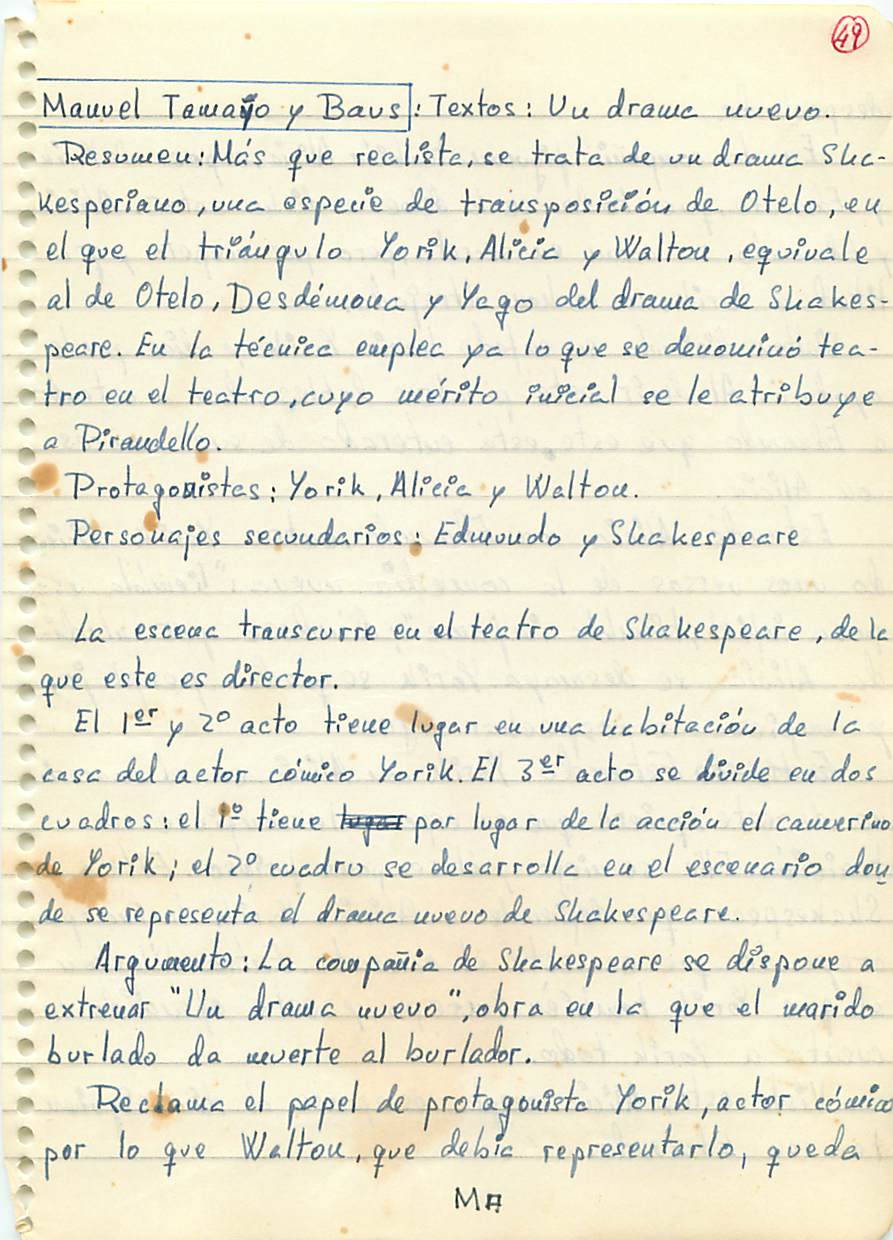 49
Manuel Tamayo y Baus: Textos: Un drama nuevo.
Resumen: Más que realista, se trata de un drama Sha-
kesperiano, una especie de transposición de Otelo, en
el que el triángulo Yorik, Alicia y Walton, equivale
al de Otelo, Desdémona y Yago del drama de Shakes-
peare. En la técnica emplea ya lo que se denominó tea-
tro en el teatro, cuyo mérito inicial se le atribuye
a Pirandello.
Protagonistas: Yorik, Alicia y Walton.
Personajes secundarios: Edmundo y Shakespeare
La escena transcurre en el teatro de Shakespeare, de la
que este es director.
El 1er y 2º acto tiene lugar en una habitación de la
casa del actor cómico Yorik. El 3er acto se divide en dos
cuadros: el 1º tiene lugar por lugar de la acción el camerino
de Yorik; el 2º cuadro se desarrolla en el escenario don
de se representa el drama nuevo de Shakespeare.
Argumento: La compañia de Shakespeare se dispone a
extrenar "Un drama nuevo", obra en la que el marido
burlado da muerte al burlador.
Reclama el papel de protagonista Yorik, actor cómico
por lo que Walton, que debia representarlo, queda
MA